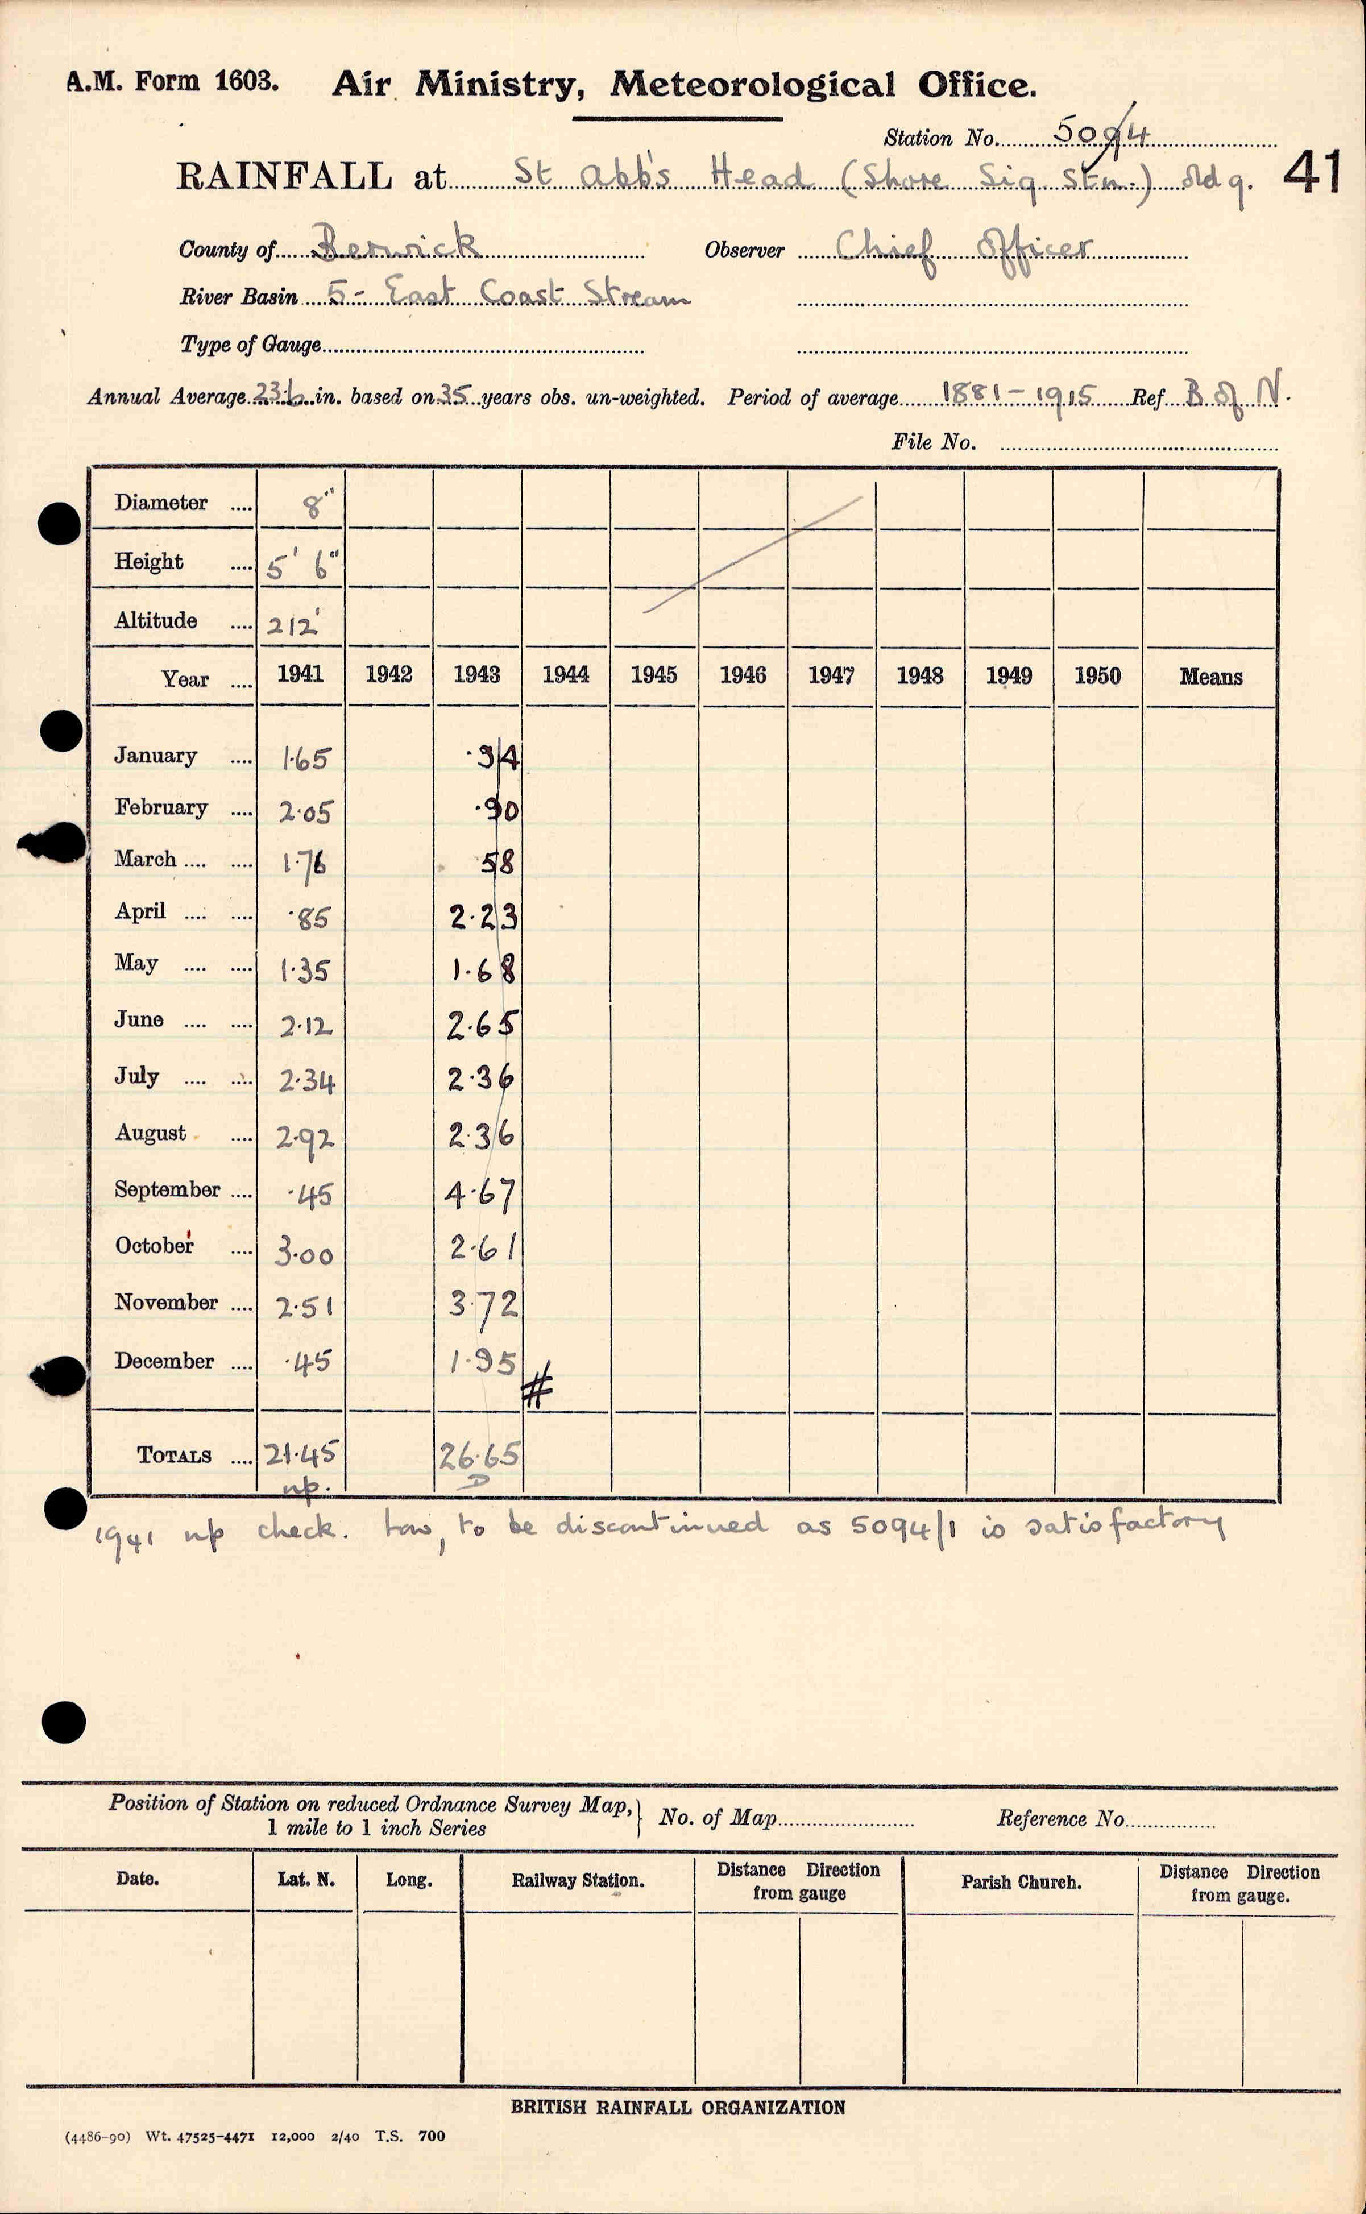 A.M. Form 1603. Air Ministry, Meteorological Office.
Station No. 5094
RAINFALL at St Abb's Head (Shore Sig. Stn.) 41
County of Berwick Observer Chief Officer
River Basin 5 - East Coast Stream
Type of Gauge
Annual Average 23.6 in. based on 35 years obs. un-weighted. Period of average 1881-1915 Ref. B of N.
File No.
Diameter .... 8"
Height .... 5' 6"
Altitude .... 212'
Year .... 1941 1942 1943 1944 1945 1946 1947 1948 1949 1950 Means
January .... 1.65 .94
February .... 2.05 .90
March .... .... 1.76 58
April .... .... .85 2.23
May .... .... 1.35 1.68
June .... .... 2.12 2.65
July .... .... 2.34 2.36
August .... 2.92 2.36
September .... .45 4.67
October .... 3.00 2.61
November .... 2.51 3.72
December .... .45 1.95 #
TOTALS .... 21.45 26.65
np. D
1941 np check. Low, to be discontinued as 5094/1 is satisfactory
Position of Station on reduced Ordnance Survey Map, 1 mile to 1 inch Series } No. of Map Reference No.
Date. Lat. N. Long. Railway Station. Distance Direction from gauge Parish Church. Distance Direction from gauge.
BRITISH RAINFALL ORGANIZATION
(4486-90) Wt. 47525-4471 12,000 2/40 T.S. 700